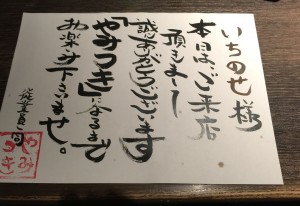 いちのせ様
本日はご来店
頂きまして
誠にありがとうございます
「やみつき」になるまで
お楽み下さいませ。
従業員一同
やみつき